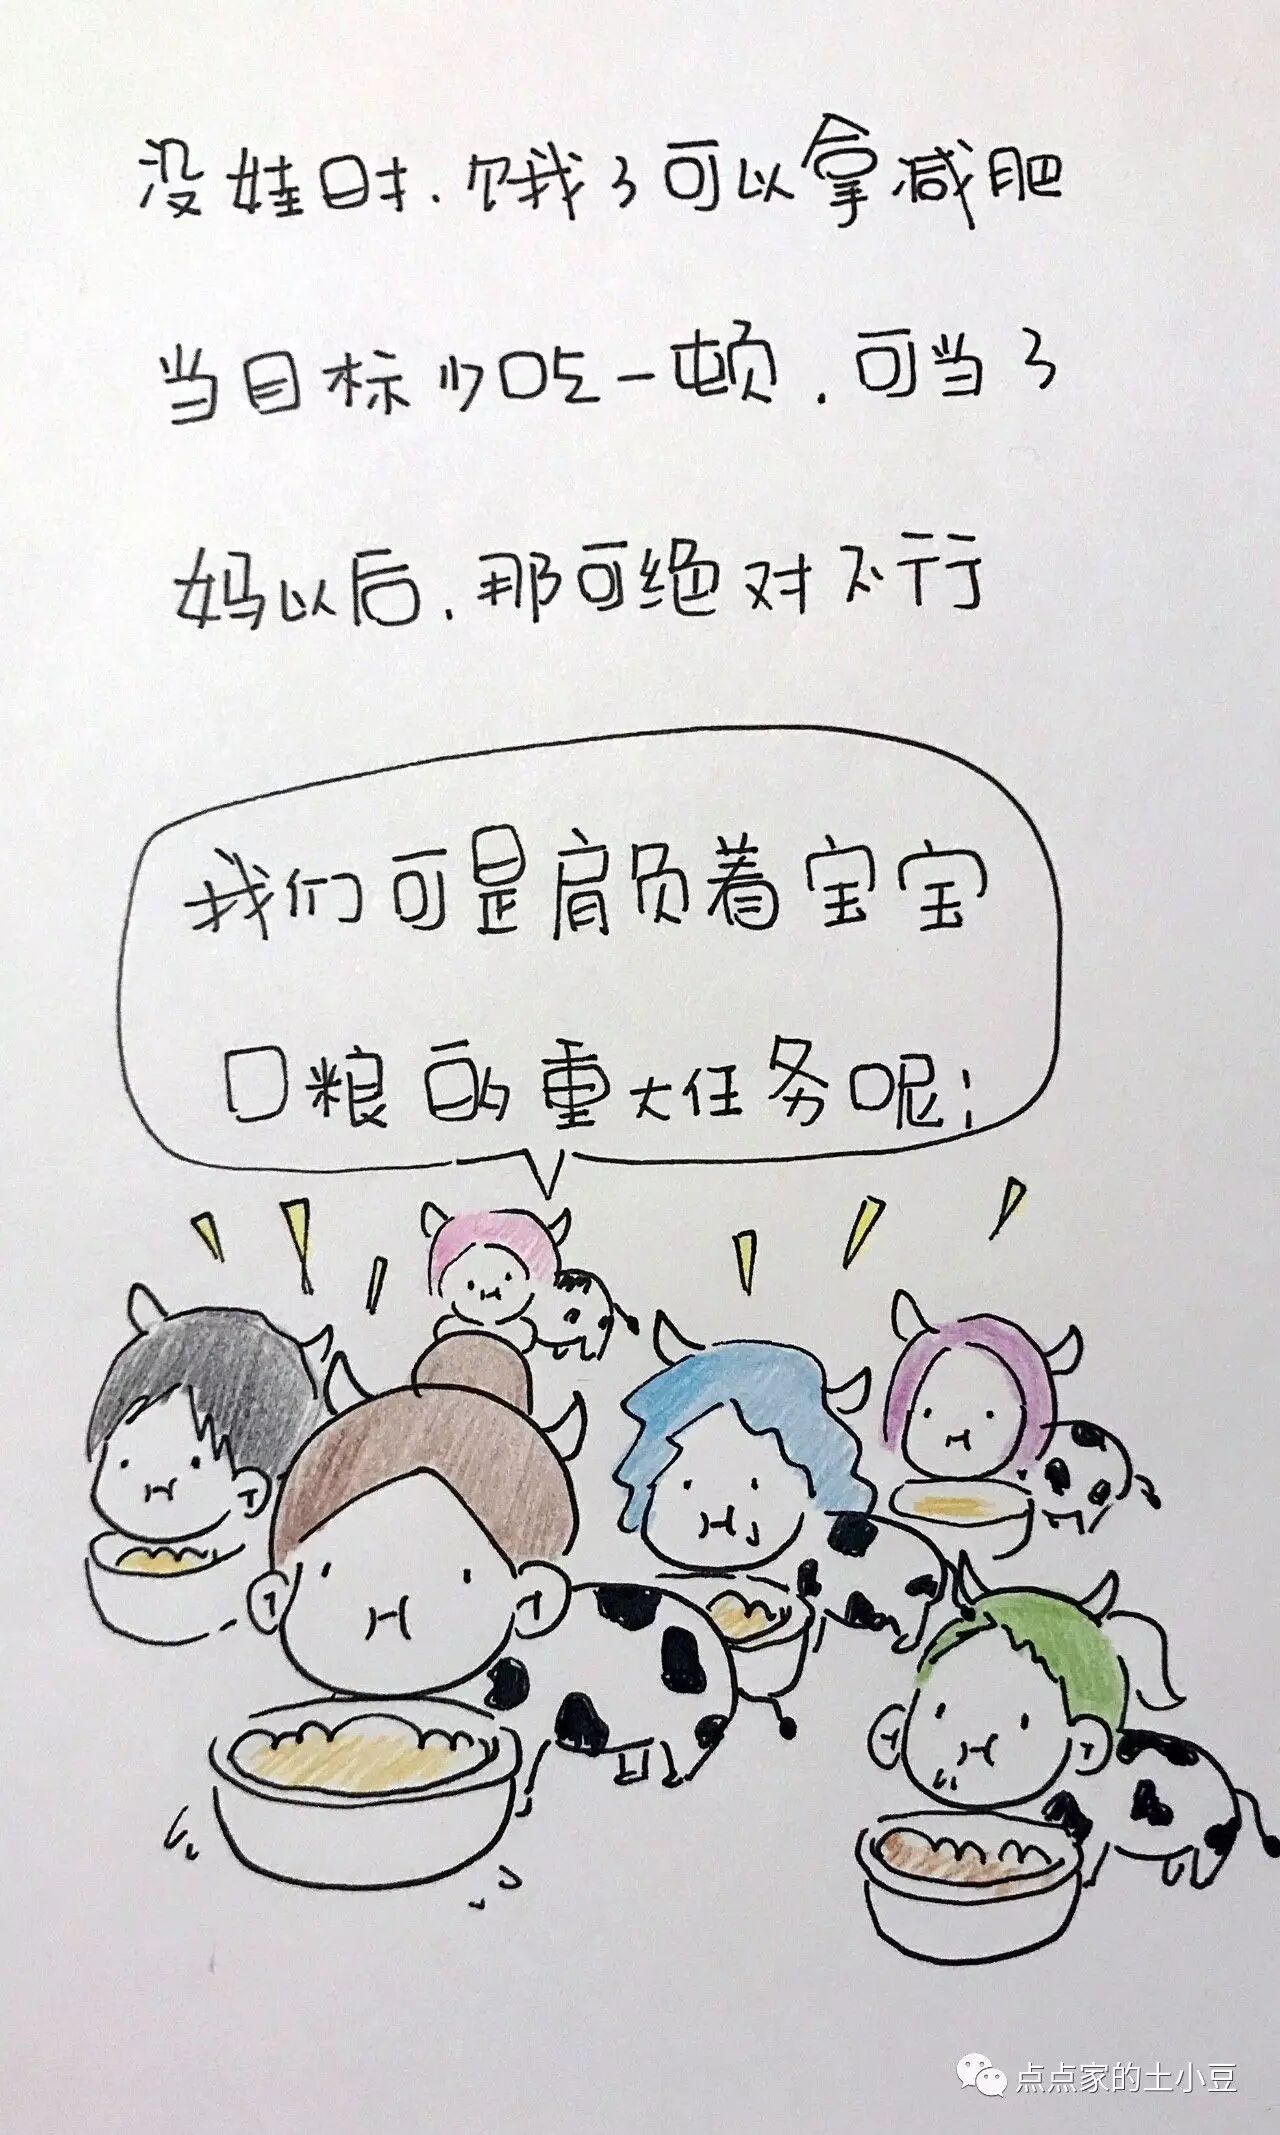 没娃时.饿了可以拿减肥
当目标少吃一顿.可当了
妈以后.那可绝对不行
我们可是肩负着宝宝
口粮的重大任务呢!
点点家的土小豆